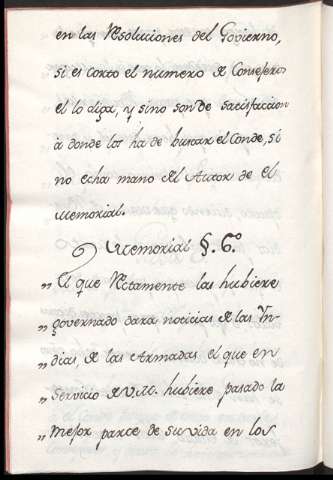 en las Resoluciones del Govierno,
si es corto el numero de Consejeros
el lo diga, y sino son de satisfaccion
à donde los ha de buscar el Conde, si
no echa mano del Autor de el
memorial.
Memorial §. 6.º
„ El que Rectamente las hubiere
„ governado dara noticias de las Yn-
„ dias, de las Armadas el que en
„ servicio de V.M. hubiere pasado la
„ mejor parte de su vida en los